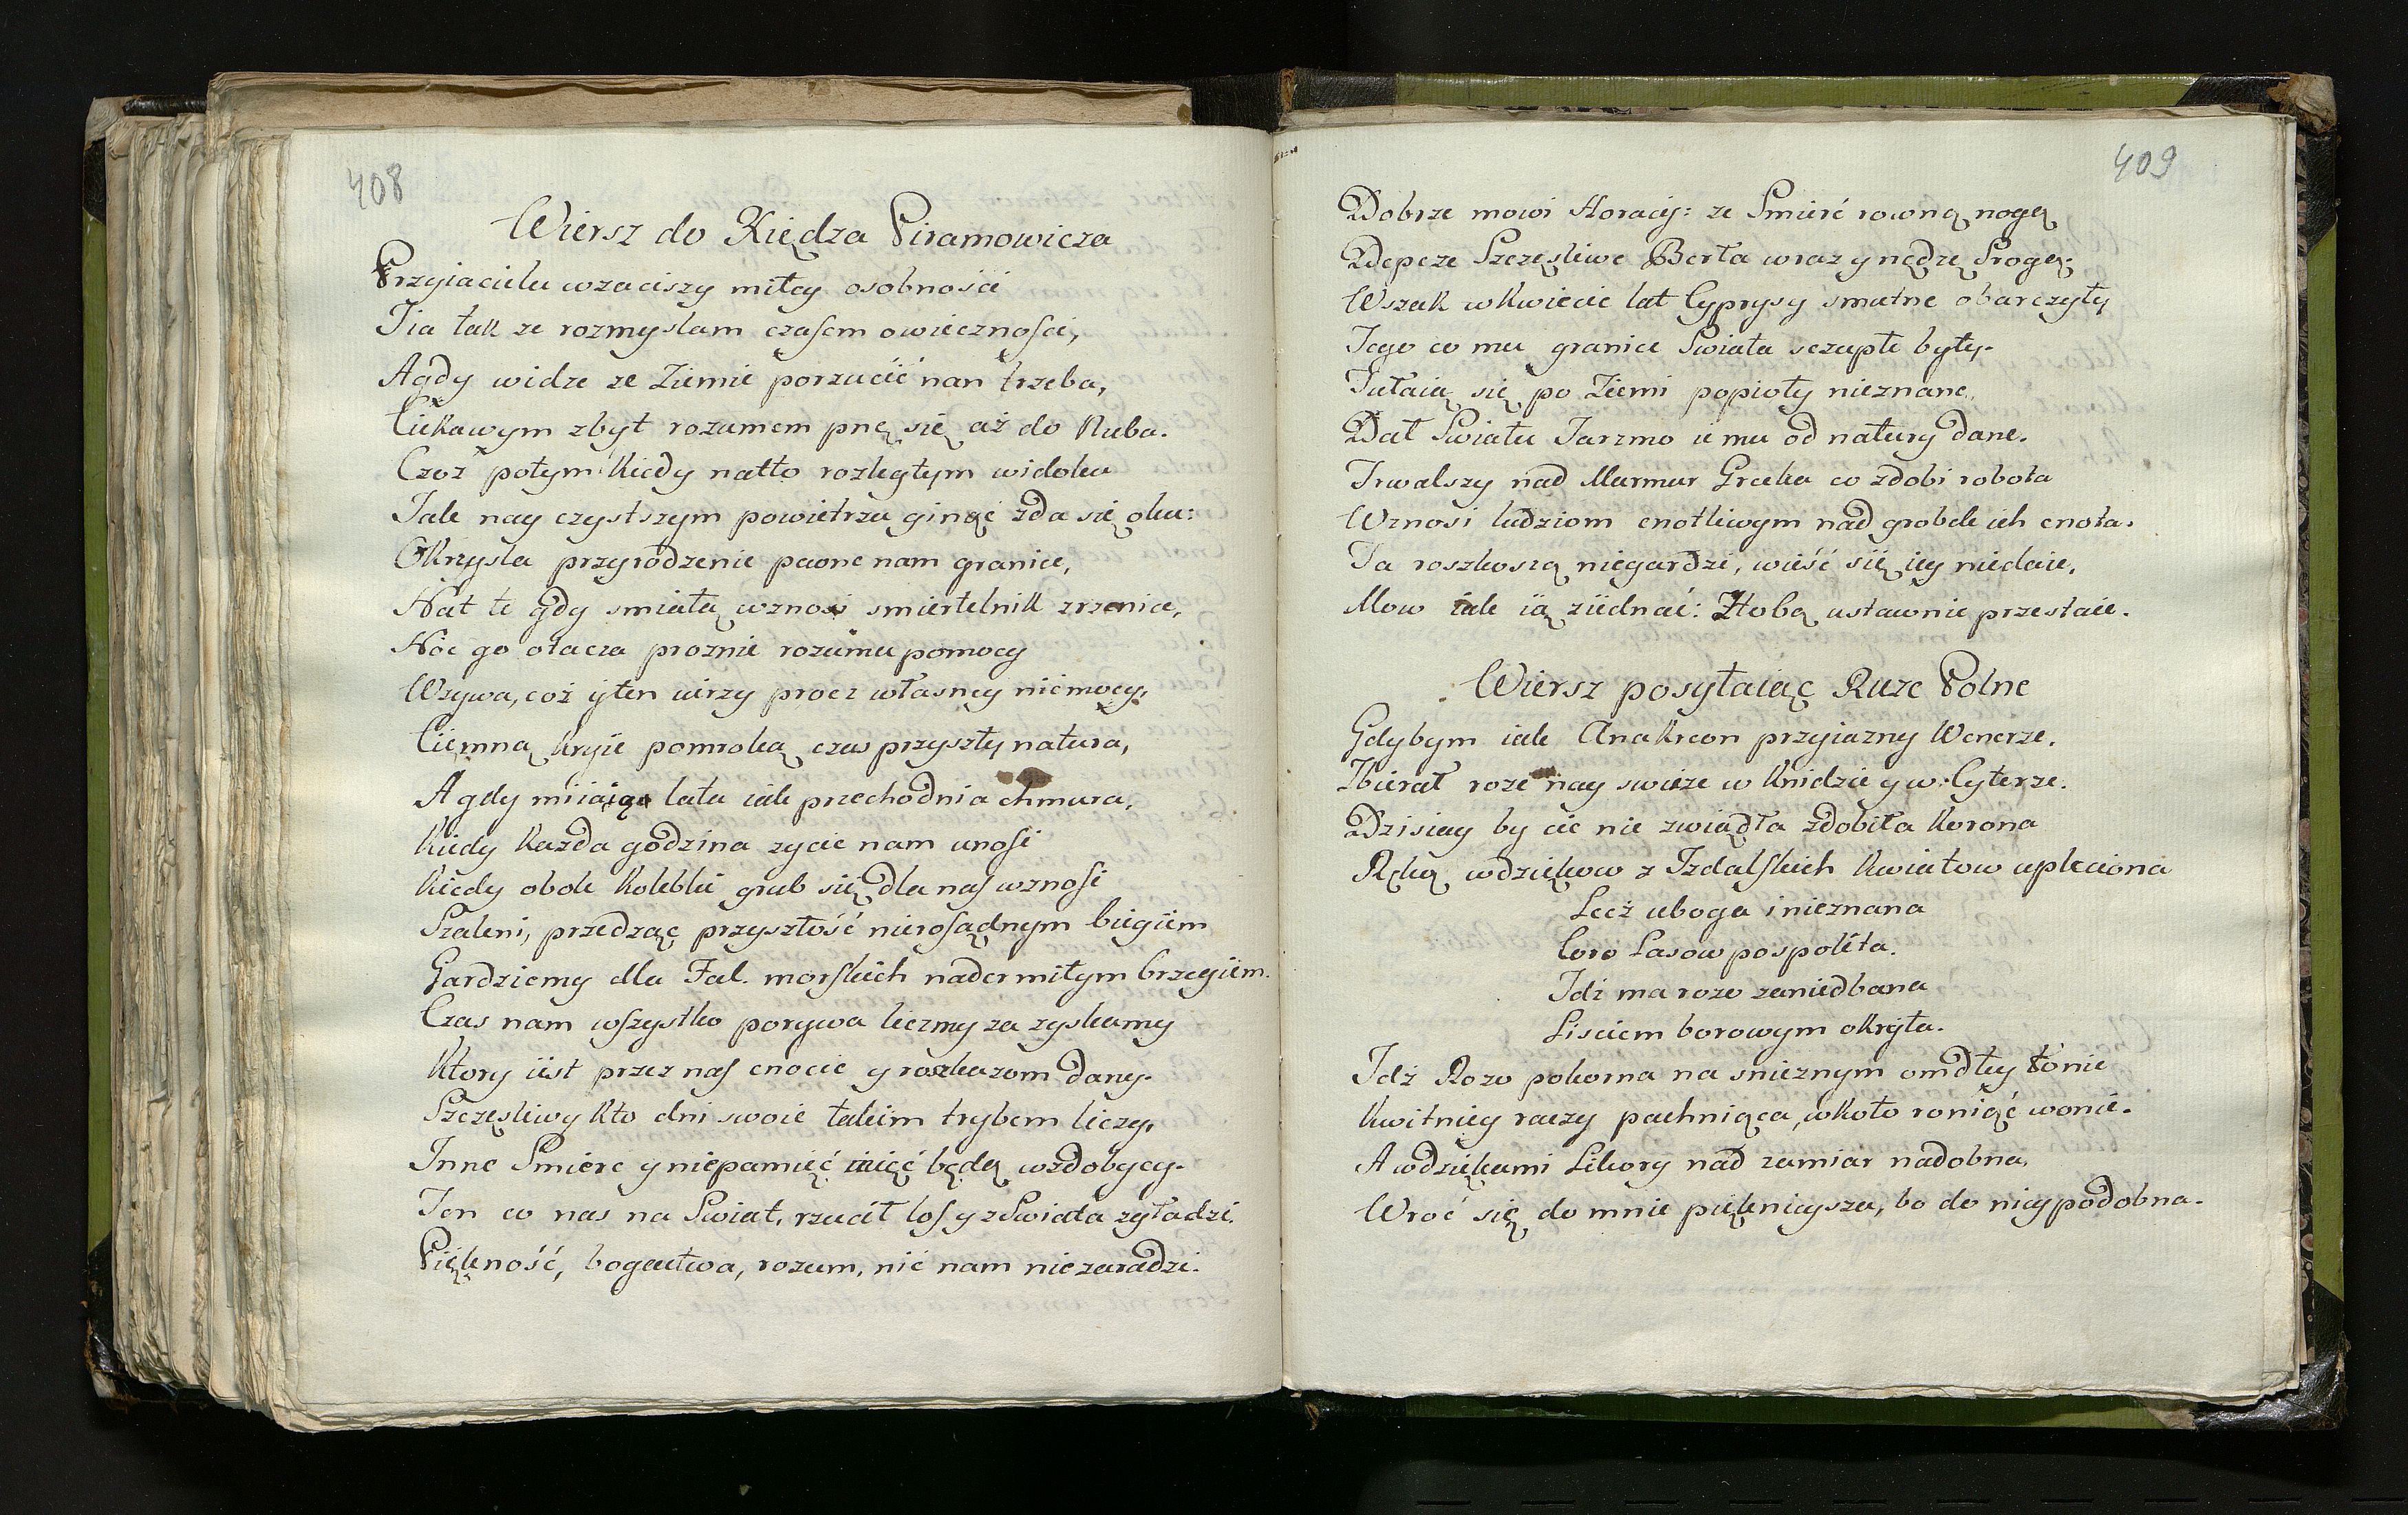 408
Wiersz do Xiędza Piramowicza
Przyiacielu wzaciszy miłey osobności
I ia tak ze rozmyslam czasem owiecznosci,
A gdy widze ze Ziemie porzucić nan trzeba,
Ciekawym zbyt rozumem pnę się aż do Nieba.
Czoż potym kiedy natto rozległym widoku
Iak nay czystszym powietrzu ginąć zda się oku:
Okrysla przyrodzenie pewne nam granice,
Nat te gdy smiałą wznosi smiertelnik zrzenice,
Noc go otacza proznie rozumu pomocy
Wzywa, coż y ten wirzy procz własney niemocy,
Ciemną kryie pomroką czas przyszły natura,
A gdy miiaią lata iak przechodnia chmura,
Kiedy każda godzina zycie nam unosi
Kiedy obok kolebki grub się dla nas wznosi
Szaleni, przedząc przyszłość nierosądnym biegiem
Gardziemy dla Fal. morskich nader miłym brzegiem.
Czas nam wszystko porywa liczmy za zyskamy
Ktory iest przez nas cnocie y rozkazom dany.
Szczęsliwy kto dni swoie takim trybem liczy,
Inne Smierc y niepamięć mieć będą wzdobyczy.
Ten co nas na Swiat, rzucił los y z Swiata zgładzi.
Piękność, bogactwa, rozum, nic nam nie zaradzi.
409
Dobrze mowi Horacy: ze Smierć rowną nogą
Depcze Szczęsliwe Berła wraz y nędzę Srogą;
Wszak wkwiecie lat Cyprysy smutne obarczyły
Tego co mu granice Swiata szczupłe były.
Tułaią się po Ziemi popioły nieznane,
Dał Swiatu Jarzmo iemu od natury dane.
Trwalszy nad Marmur Grecka co zdobi robota
Wznosi ludziom cnotliwym nad grobek ich cnota.
Ta roszkoszą niegardzi, wieść się iey niedaie,
Mow iak ią ziednać: Ztobą ustawnie przestaie.
Wiersz posyłaiąc Ruze Polne
Gdybym iak Anakreon przyiazny Wenerze,
Zbierał roze nay swieze w Knidzie y w Cyterze.
Dzisiay by cie nie zwiądła zdobiła korona
Ręką wdziękow z Izdalskich kwiatow upleciona
Lecż uboga i nieznana
Coro Lasow pospolita.
Idź ma rozo zaniedbana
Lisciem borowym okryta.
Idź Rozo pokorna na snieznym omdley łonie
Kwitniey raczy pachniąca, wkoło ronić wonie.
A wdziękami Likory nad zamiar nadobna,
Wroć się do mnie piękniaysza, bo do niey podobna.